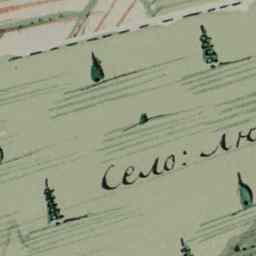 Село: Лю